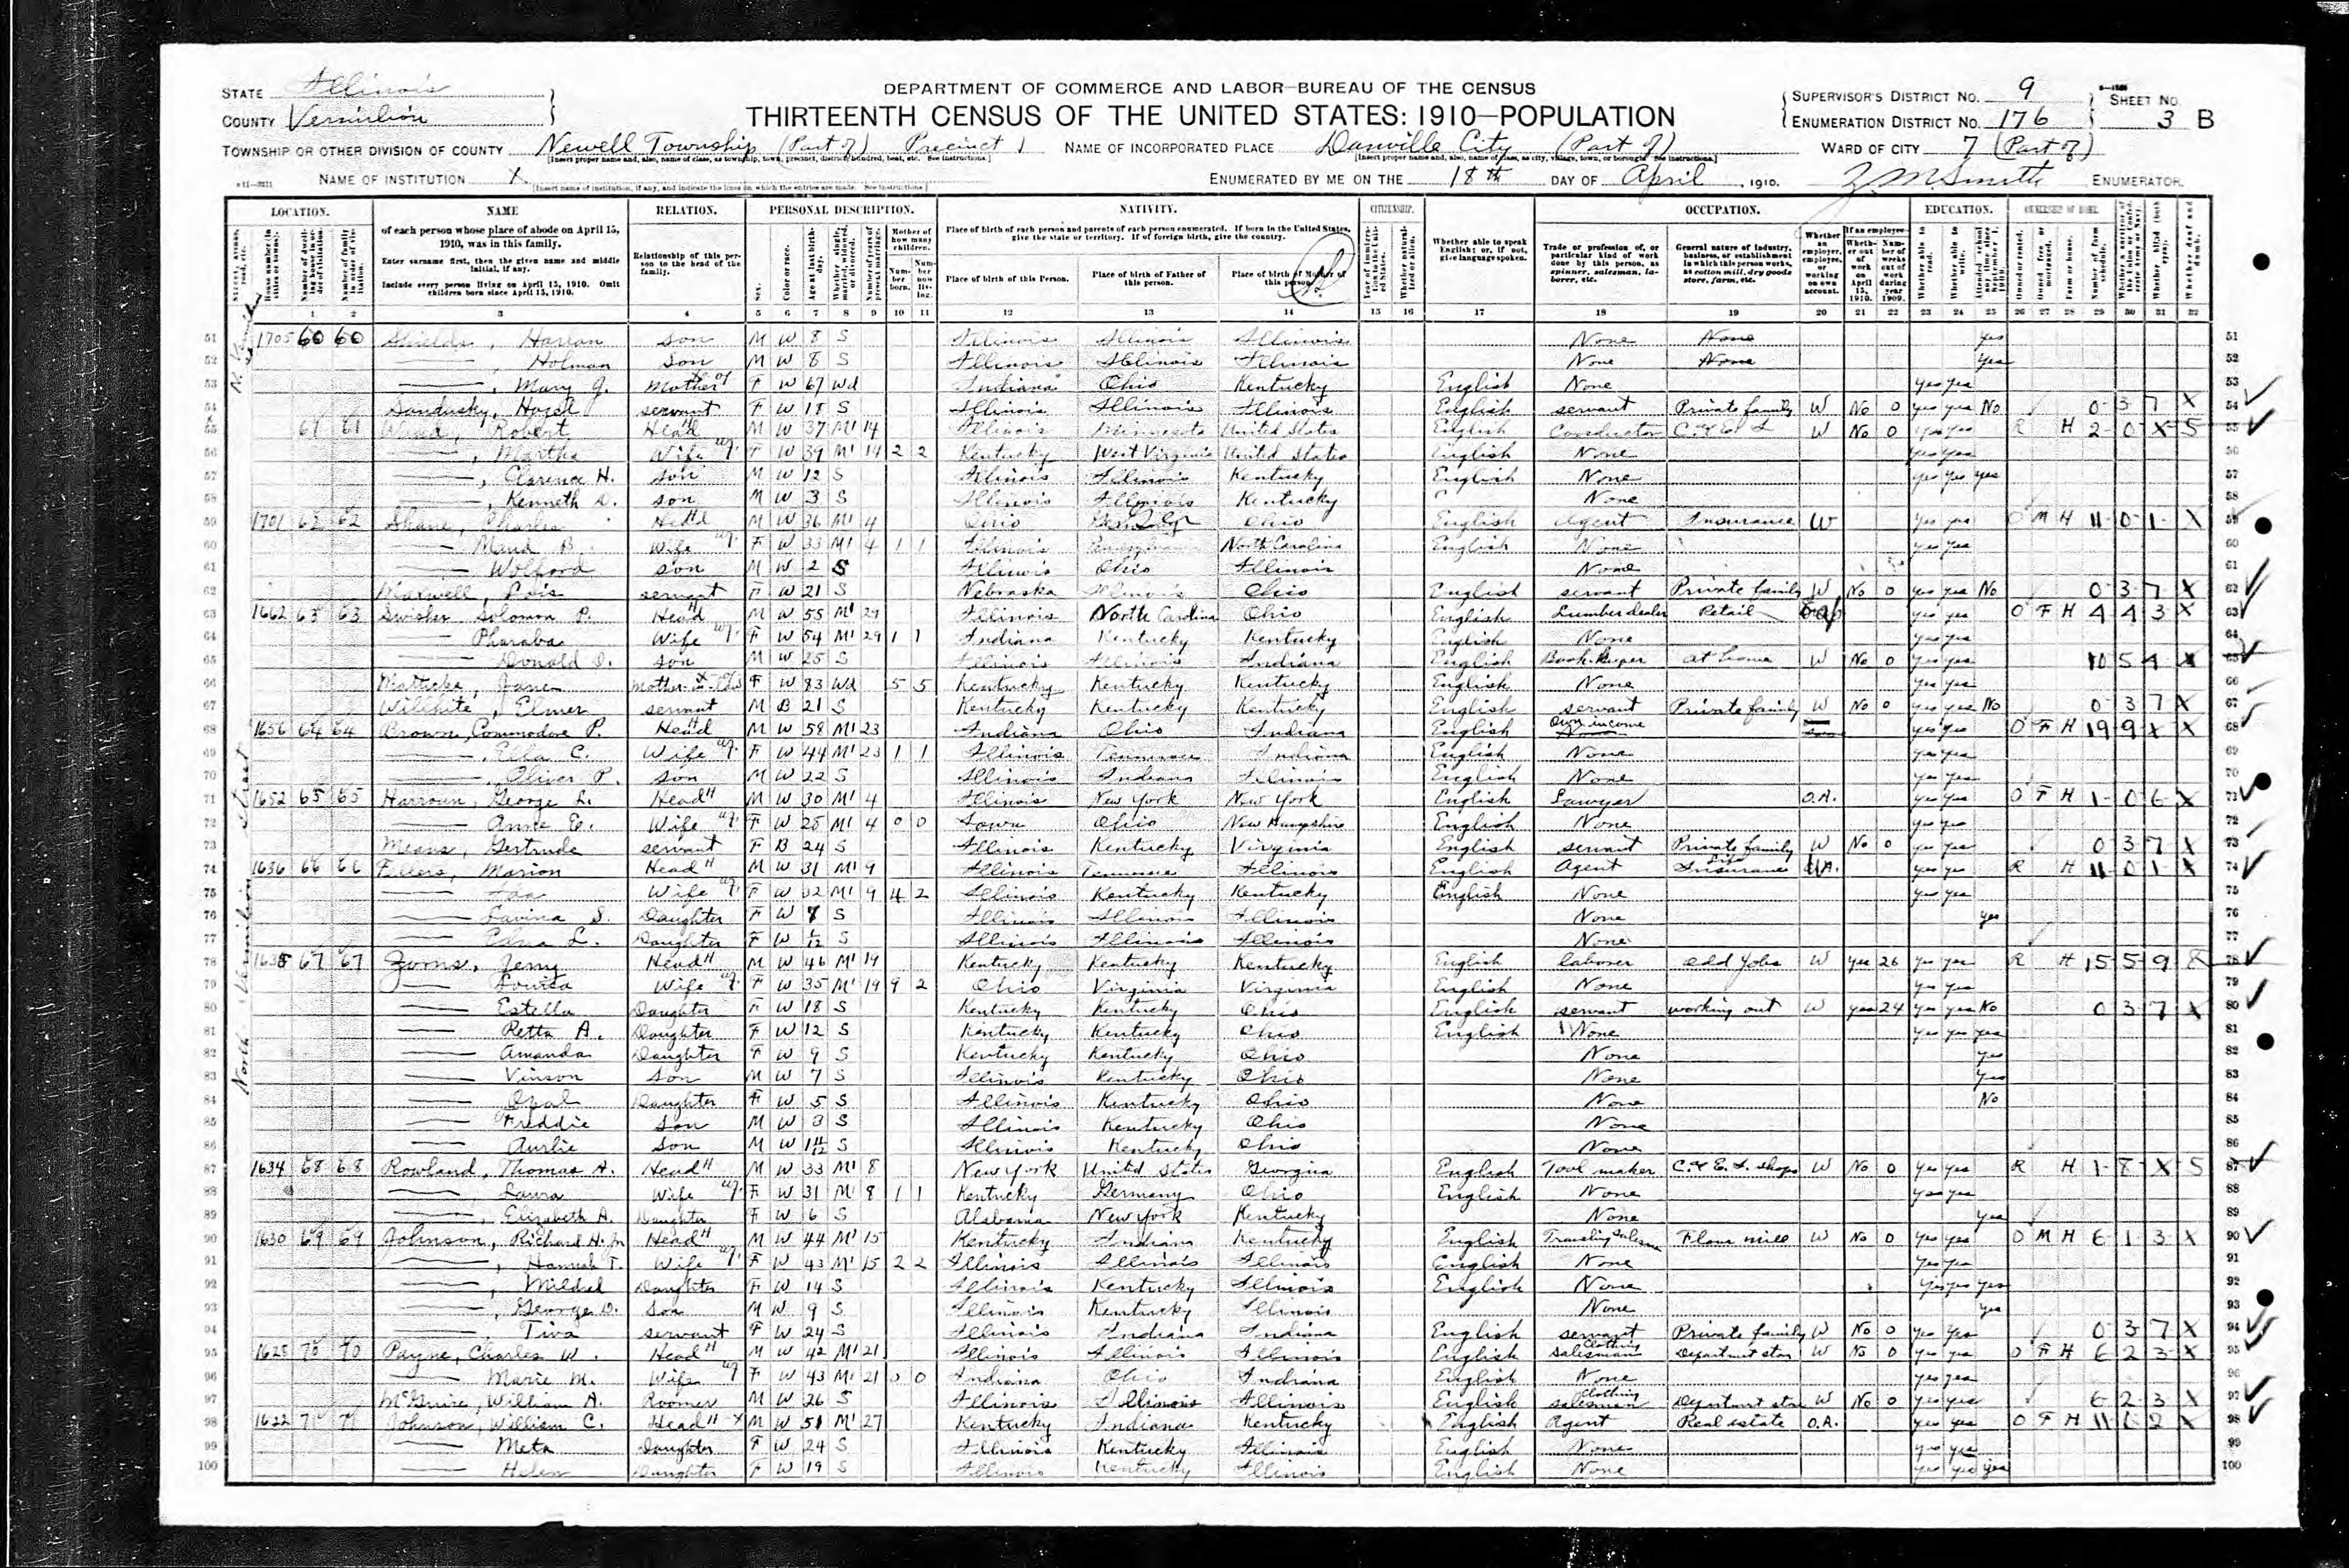 STATE Illinois
COUNTY Vermilion
DEPARTMENT OF COMMERCE AND LABOR—BUREAU OF THE CENSUS
THIRTEENTH CENSUS OF THE UNITED STATES: 1910—POPULATION
SUPERVISOR'S DISTRICT NO. 9
ENUMERATION DISTRICT NO. 176
SHEET NO. 3 B
TOWNSHIP OR OTHER DIVISION OF COUNTY Newell Township (Part of) Precinct 1
NAME OF INCORPORATED PLACE Danville City (Part of)
WARD OF CITY 7 (Part of)
NAME OF INSTITUTION X
ENUMERATED BY ME ON THE 18th DAY OF April, 1910. Z. M. Smith ENUMERATOR.
LOCATION. NAME RELATION. PERSONAL DESCRIPTION. NATIVITY. CITIZENSHIP. OCCUPATION. EDUCATION. OWNERSHIP OF HOME.
of each person whose place of abode on April 15, 1910, was in this family.
Enter surname first, then the given name and middle initial, if any.
Include every person living on April 15, 1910. Omit children born since April 15, 1910.
Relationship of this person to the head of the family.
Place of birth of each person and parents of each person enumerated. If born in the United States, give the state or territory. If of foreign birth, give the country.
Place of birth of this Person. Place of birth of Father of this person. Place of birth of Mother of this person.
Whether able to speak English; or, if not, give language spoken.
Trade or profession of, or particular kind of work done by this person, as spinner, salesman, laborer, etc.
General nature of industry, business, or establishment in which this person works, as cotton mill, dry goods store, farm, etc.
1 2 3 4 5 6 7 8 9 10 11 12 13 14 15 16 17 18 19 20 21 22 23 24 25 26 27 28 29 30 31 32
51 1705 60 60 Shields, Harlan Son M W 8 S Illinois Illinois Illinois None None Yes
52 Holman Son M W 8 S Illinois Illinois Illinois None None Yes
53 Mary J. Mother F W 67 Wd Indiana Ohio Kentucky English None yes yes
54 Sandusky, Hazel servant F W 18 S Illinois Illinois Illinois English servant Private family W No 0 yes yes No 0 3 7 X
55 61 61 Robert Head M W 37 M1 14 Illinois Minnesota United States English Conductor C. & E. I. W No 0 yes yes R H 2 0 X 5
56 Martha Wife F W 39 M1 14 2 2 Kentucky West Virginia United States English None yes yes
57 Clarence H. son M W 12 S Illinois Illinois Kentucky English None yes yes yes
58 Kenneth son M W 3 S Illinois Illinois Kentucky None
59 1701 62 62 Shane, Charles Head M W 36 M1 4 Ohio Ohio English Agent Insurance W yes yes O M H 11 0 1 X
60 Maud B. Wife F W 33 M1 4 1 1 Illinois Pennsylvania North Carolina English None yes yes
61 Wolford son M W 2 S Illinois Ohio Illinois None
62 Maxwell, Lois servant F W 21 S Nebraska Illinois Ohio English servant Private family W No 0 yes yes No 0 3 7 X
63 1662 63 63 Swisher Solomon P. Head M W 55 M1 29 Illinois North Carolina Ohio English Lumber dealer Retail yes yes O F H 4 4 3 X
64 Pharaba Wife F W 54 M1 29 1 1 Indiana Kentucky Kentucky English None yes yes
65 Donald son M W 25 S Illinois Illinois Indiana English Book-Keeper at home W No 0 yes yes 10 5 4 X
66 Jane Mother-in-law F W 83 Wd 5 5 Kentucky Kentucky Kentucky English None yes yes
67 Willhite, Elmer servant M B 21 S Kentucky Kentucky Kentucky English servant Private family W No 0 yes yes No 0 3 7 X
68 1656 64 64 Brown, Commodore P. Head M W 58 M1 23 Indiana Ohio Indiana English Own income yes yes O F H 19 9 X X
69 Ella C. Wife F W 44 M1 23 1 1 Illinois Tennessee Indiana English None yes yes
70 Oliver P. son M W 22 S Illinois Indiana Illinois English None yes yes
71 1652 65 65 Harroun, George L. Head M W 30 M1 4 Illinois New York New York English Lawyer O.A. yes yes O F H 1 0 6 X
72 Anne E. Wife F W 28 M1 4 0 0 Iowa Ohio New Hampshire English None yes yes
73 Means, Gertrude servant F B 24 S Illinois Kentucky Virginia English servant Private family W No 0 yes yes 0 3 7 X
74 1636 66 66 Fellers, Marion Head M W 31 M1 9 Illinois Tennessee Illinois English Agent Life Insurance yes yes R H 11 0 1 X
75 Ida Wife F W 32 M1 9 4 2 Illinois Kentucky Kentucky English None yes yes
76 Lavina S. Daughter F W 7 S Illinois Illinois Illinois None yes
77 Edna L. Daughter F W 1/12 S Illinois Illinois Illinois None
78 1638 67 67 Zorns, Jerry Head M W 46 M1 19 Kentucky Kentucky Kentucky English laborer odd jobs W yes 26 yes yes R H 15 5 9 8
79 Louisa Wife F W 35 M1 19 9 2 Ohio Virginia Virginia English None yes yes
80 Estella Daughter F W 18 S Kentucky Kentucky Ohio English servant working out W yes 24 yes yes No 0 3 7 X
81 Retta A. Daughter F W 12 S Kentucky Kentucky Ohio English None yes yes yes
82 Amanda Daughter F W 9 S Kentucky Kentucky Ohio None yes
83 Vinson son M W 7 S Illinois Kentucky Ohio None yes
84 Opal Daughter F W 5 S Illinois Kentucky Ohio None No
85 Freddie Son M W 3 S Illinois Kentucky Ohio None
86 Aurlie Son M W 1 11/12 S Illinois Kentucky Ohio None
87 1634 68 68 Rowland, Thomas A. Head M W 33 M1 8 New York United States Georgia English Tool maker C. & E. I. shops W No 0 yes yes R H 1 8 X 5
88 Laura Wife F W 31 M1 8 1 1 Kentucky Germany Ohio English None yes yes
89 Elizabeth A. Daughter F W 6 S Alabama New York Kentucky None yes
90 1630 69 69 Johnson, Richard H. Jr Head M W 44 M1 15 Kentucky Indiana Kentucky English Traveling Salesman Flour mill W No 0 yes yes O M H 6 1 3 X
91 Hannah T. Wife F W 43 M1 15 2 2 Illinois Illinois Illinois English None yes yes
92 Mildred Daughter F W 14 S Illinois Kentucky Illinois English None yes yes yes
93 George D. Son M W 9 S Illinois Kentucky Illinois None yes
94 Tiva servant F W 24 S Illinois Indiana Indiana English servant Private family W No 0 yes yes 0 3 7 X
95 1628 70 70 Payne, Charles W. Head M W 42 M1 21 Illinois Illinois Illinois English Clothing salesman Department store W No 0 yes yes O F H 6 2 3 X
96 Marie M. Wife F W 43 M1 21 0 0 Indiana Ohio Indiana English None yes yes
97 McGuire, William A. Roomer M W 26 S Illinois Illinois Illinois English Clothing salesman Department store W No 0 yes yes 6 2 3 X
98 1622 71 71 Johnson, William C. Head M W 51 M1 27 Kentucky Indiana Kentucky English Agent Real estate O.A. yes yes O F H 11 6 2 X
99 Meta Daughter F W 24 S Illinois Kentucky Illinois English None yes yes
100 Helen Daughter F W 19 S Illinois Kentucky Illinois English None yes yes yes
North Vermilion Street